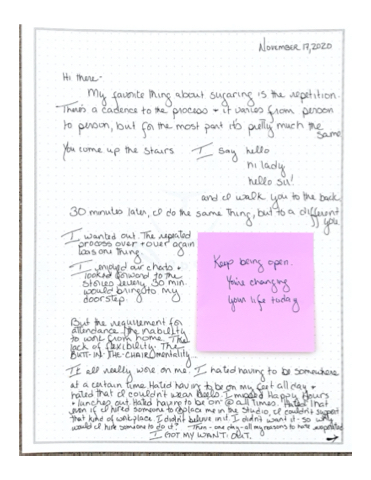 November 17, 2020
Hi there-
My favorite thing about sugaring is the repetition.
There's a cadence to the process + it varies from person
to person, but for the most part it's pretty much the
same.
You come up the stairs I say hello
hi lady
hello sir!
and I walk you to the back
30 minutes later, I do the same thing, but to a different
you
I wanted out. The repeated
process over + over again
was one thing.
I enjoyed our chats +
looked forward to the
stories every 30 min.
would bring to my
doorstep.
Keep being open.
You're changing
your life today
But the requirement for
attendance. The inability
to work from home. The
lack of flexibility. The
BUTT-IN-THE-CHAIR mentality...
It all really wore on me. I hated having to be somewhere
at a certain time. Hated having to be on my feet all day +
hated that I couldn't wear heels. I missed Happy Hours
+ lunches out. Hated having to be on @ all times. Hated that
even if I hired someone to replace me in the studio, I couldn't support
that kind of workplace. I didn't believe in it. I didn't want it - so why
would I hire someone to do it? Then - one day - all my reasons to hate
I GOT MY WANT OUT.